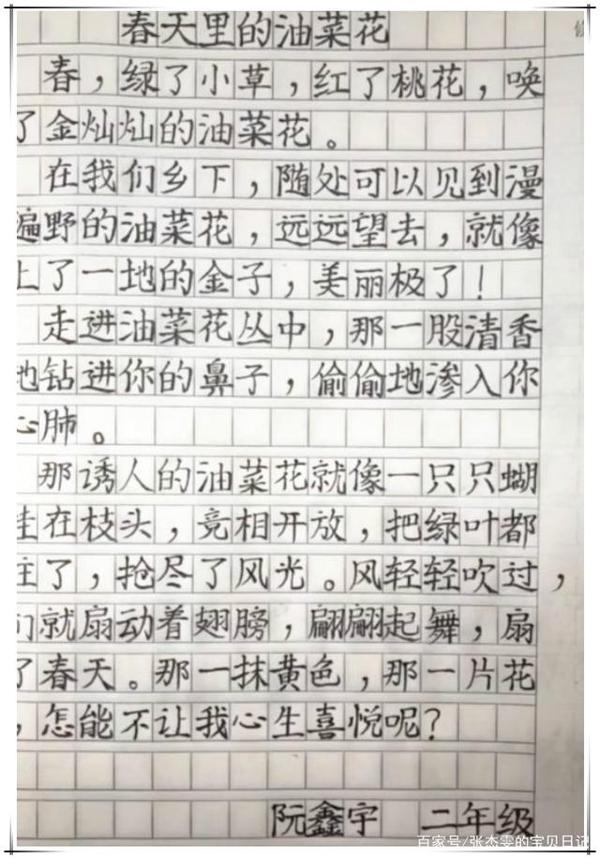 春天里的油菜花
春，绿了小草，红了桃花，唤
了金灿灿的油菜花。
在我们乡下，随处可以见到漫
遍野的油菜花，远远望去，就像
上了一地的金子，美丽极了！
走进油菜花丛中，那一股清香
地钻进你的鼻子，偷偷地渗入你
心肺。
那诱人的油菜花就像一只只蝴
在枝头，竞相开放，把绿叶都
住了，抢尽了风光。风轻轻吹过，
们就扇动着翅膀，翩翩起舞，扇
了春天。那一抹黄色，那一片花
，怎能不让我心生喜悦呢？
阮鑫宇 二年级
百家号/张杰雯的宝贝日记